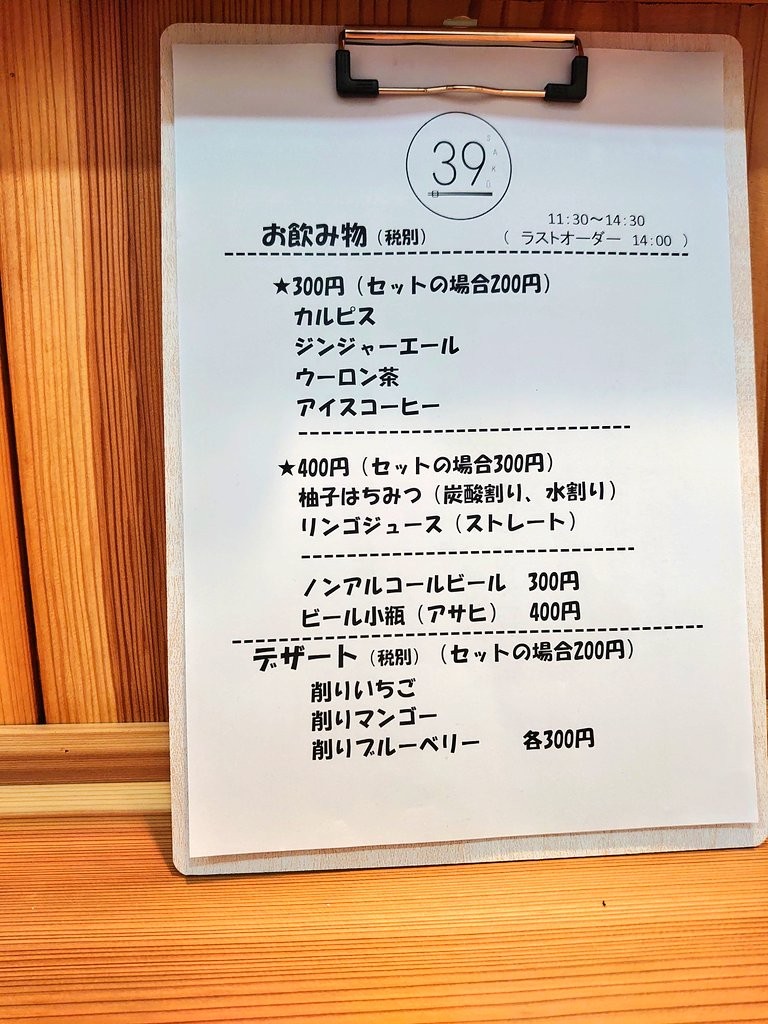 39
SAKU
11:30～14:30
お飲み物（税別）　（ ラストオーダー 14:00 ）
★300円（セットの場合200円）
カルピス
ジンジャーエール
ウーロン茶
アイスコーヒー
★400円（セットの場合300円）
柚子はちみつ（炭酸割り、水割り）
リンゴジュース（ストレート）
ノンアルコールビール　300円
ビール小瓶（アサヒ）　400円
デザート（税別）（セットの場合200円）
削りいちご
削りマンゴー
削りブルーベリー　各300円